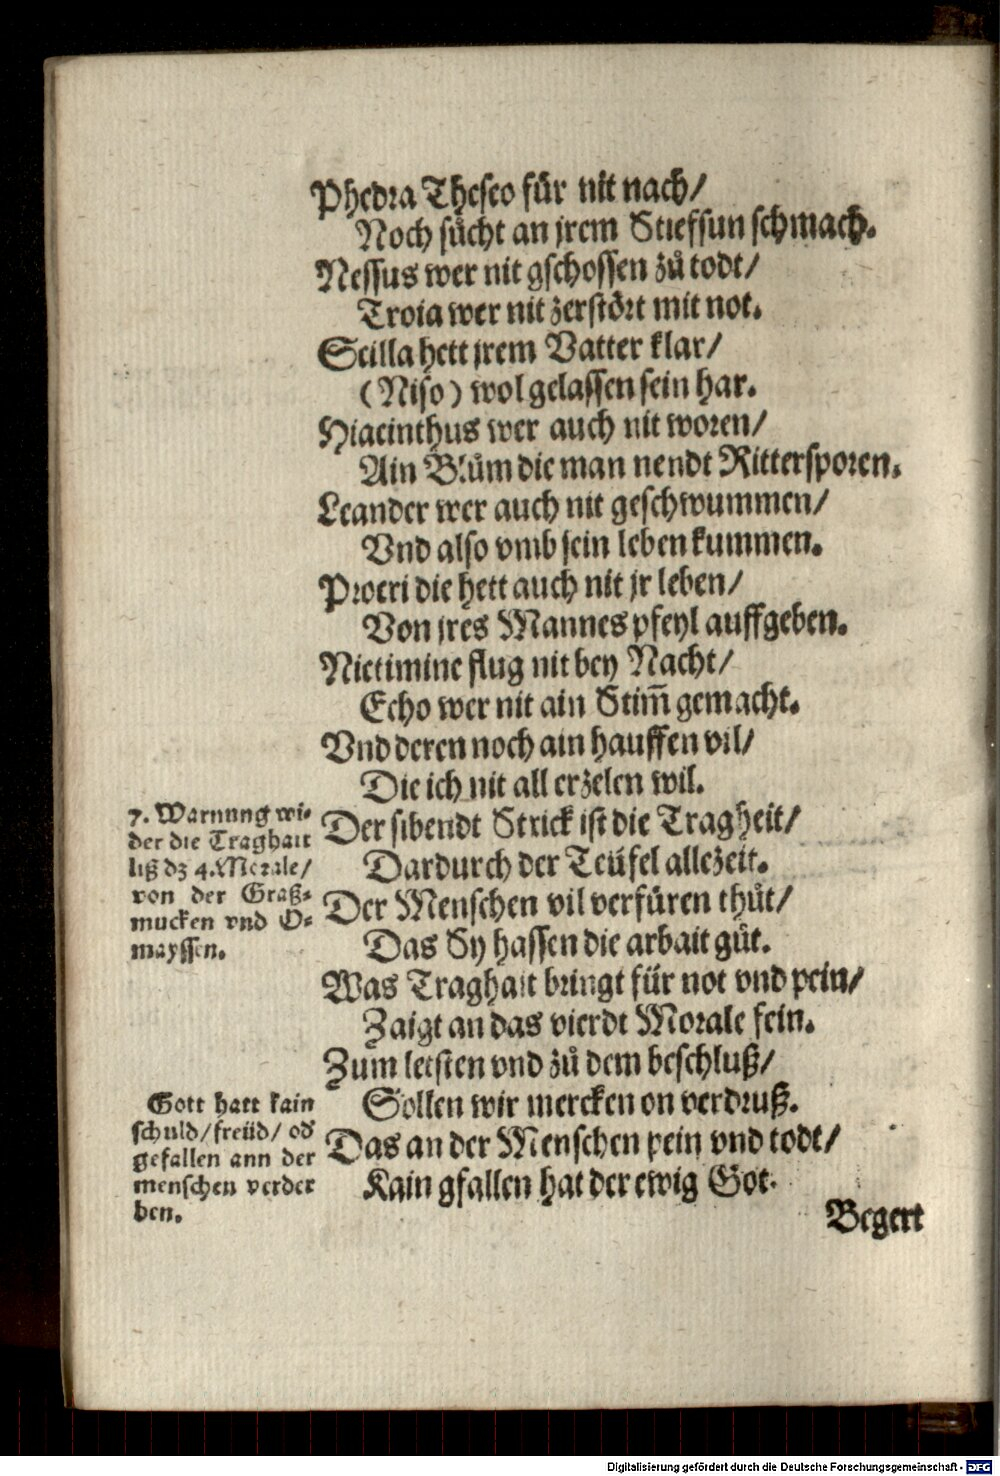 Phedra Theseo für nit nach/
Noch sücht an jrem Stiefsun schmach.
Nessus wer nit gschossen zů todt/
Troia wer nit zerstört mit not.
Scilla hett jrem Vatter klar/
(Niso) wol gelassen sein har.
Hiacinthus wer auch nit woren/
Ain Blům die man nendt Rittersporen.
Leander wer auch nit geschwummen/
Vnd also vmb sein leben kummen.
Procri die hett auch nit jr leben/
Von jres Mannes pfeyl auffgeben.
Nictimine flug nit bey Nacht/
Echo wer nit ain Stim̃ gemacht.
Vnd deren noch ain hauffen vil/
Die ich nit all erzelen wil.
7. Warnung wi-
der die Traghait
liß dz 4. Morale/
von der Graß-
mucken vnd O-
mayssen.
Der sibendt Strick ist die Tragheit/
Dardurch der Teüfel allezeit.
Der Menschen vil verfüren thůt/
Das Sy hassen die arbait gůt.
Was Traghait bringt für not vnd pein/
Zaigt an das vierdt Morale fein.
Zum letsten vnd zů dem beschluß/
Sollen wir mercken on verdruß.
Gott hatt kain
schuld/freüd/ od̛
gefallen ann der
menschen verder
ben.
Das an der Menschen pein vnd todt/
Kain gfallen hat der ewig Got.
Begert
Digitalisierung gefördert durch die Deutsche Forschungsgemeinschaft - DFG